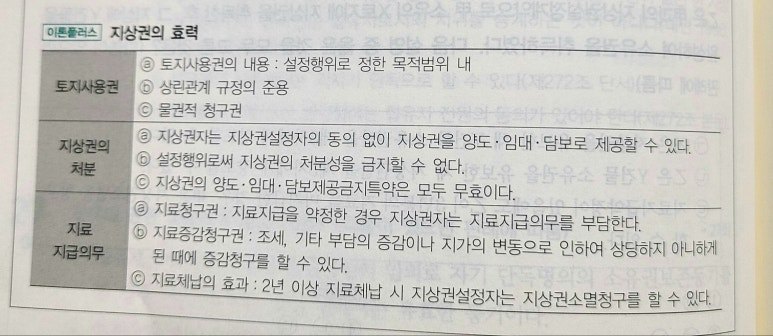 이론플러스 지상권의 효력
토지사용권
ⓐ 토지사용권의 내용 : 설정행위로 정한 목적범위 내
ⓑ 상린관계 규정의 준용
ⓒ 물권적 청구권
지상권의
처분
ⓐ 지상권자는 지상권설정자의 동의 없이 지상권을 양도·임대·담보로 제공할 수 있다.
ⓑ 설정행위로써 지상권의 처분성을 금지할 수 없다.
ⓒ 지상권의 양도·임대·담보제공금지특약은 모두 무효이다.
지료
지급의무
ⓐ 지료청구권 : 지료지급을 약정한 경우 지상권자는 지료지급의무를 부담한다.
ⓑ 지료증감청구권 : 조세, 기타 부담의 증감이나 지가의 변동으로 인하여 상당하지 아니하게
된 때에 증감청구를 할 수 있다.
ⓒ 지료체납의 효과 : 2년 이상 지료체납 시 지상권설정자는 지상권소멸청구를 할 수 있다.